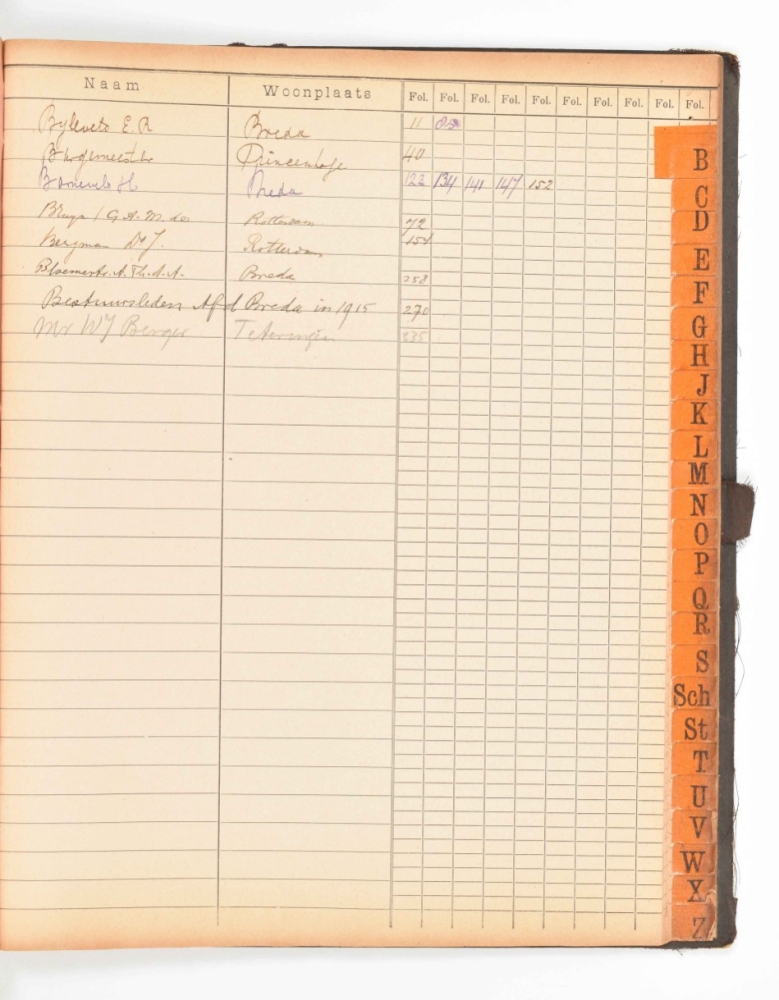 Naam Woonplaats Fol. Fol. Fol. Fol. Fol. Fol. Fol. Fol. Fol. Fol.
E. R Breda 11
Burgemeester Princenhage 40
H Breda 122 134 141 147 152
G. A. M. de Rotterdam 72
Bergman Dr J. Rotterdam 154
Breda 258
Bestuursleden Afd Breda in 1915 270
Mr W J Berger Teteringen
B
C
D
E
F
G
H
J
K
L
M
N
O
P
Q
R
S
Sch
St
T
U
V
W
X
Z